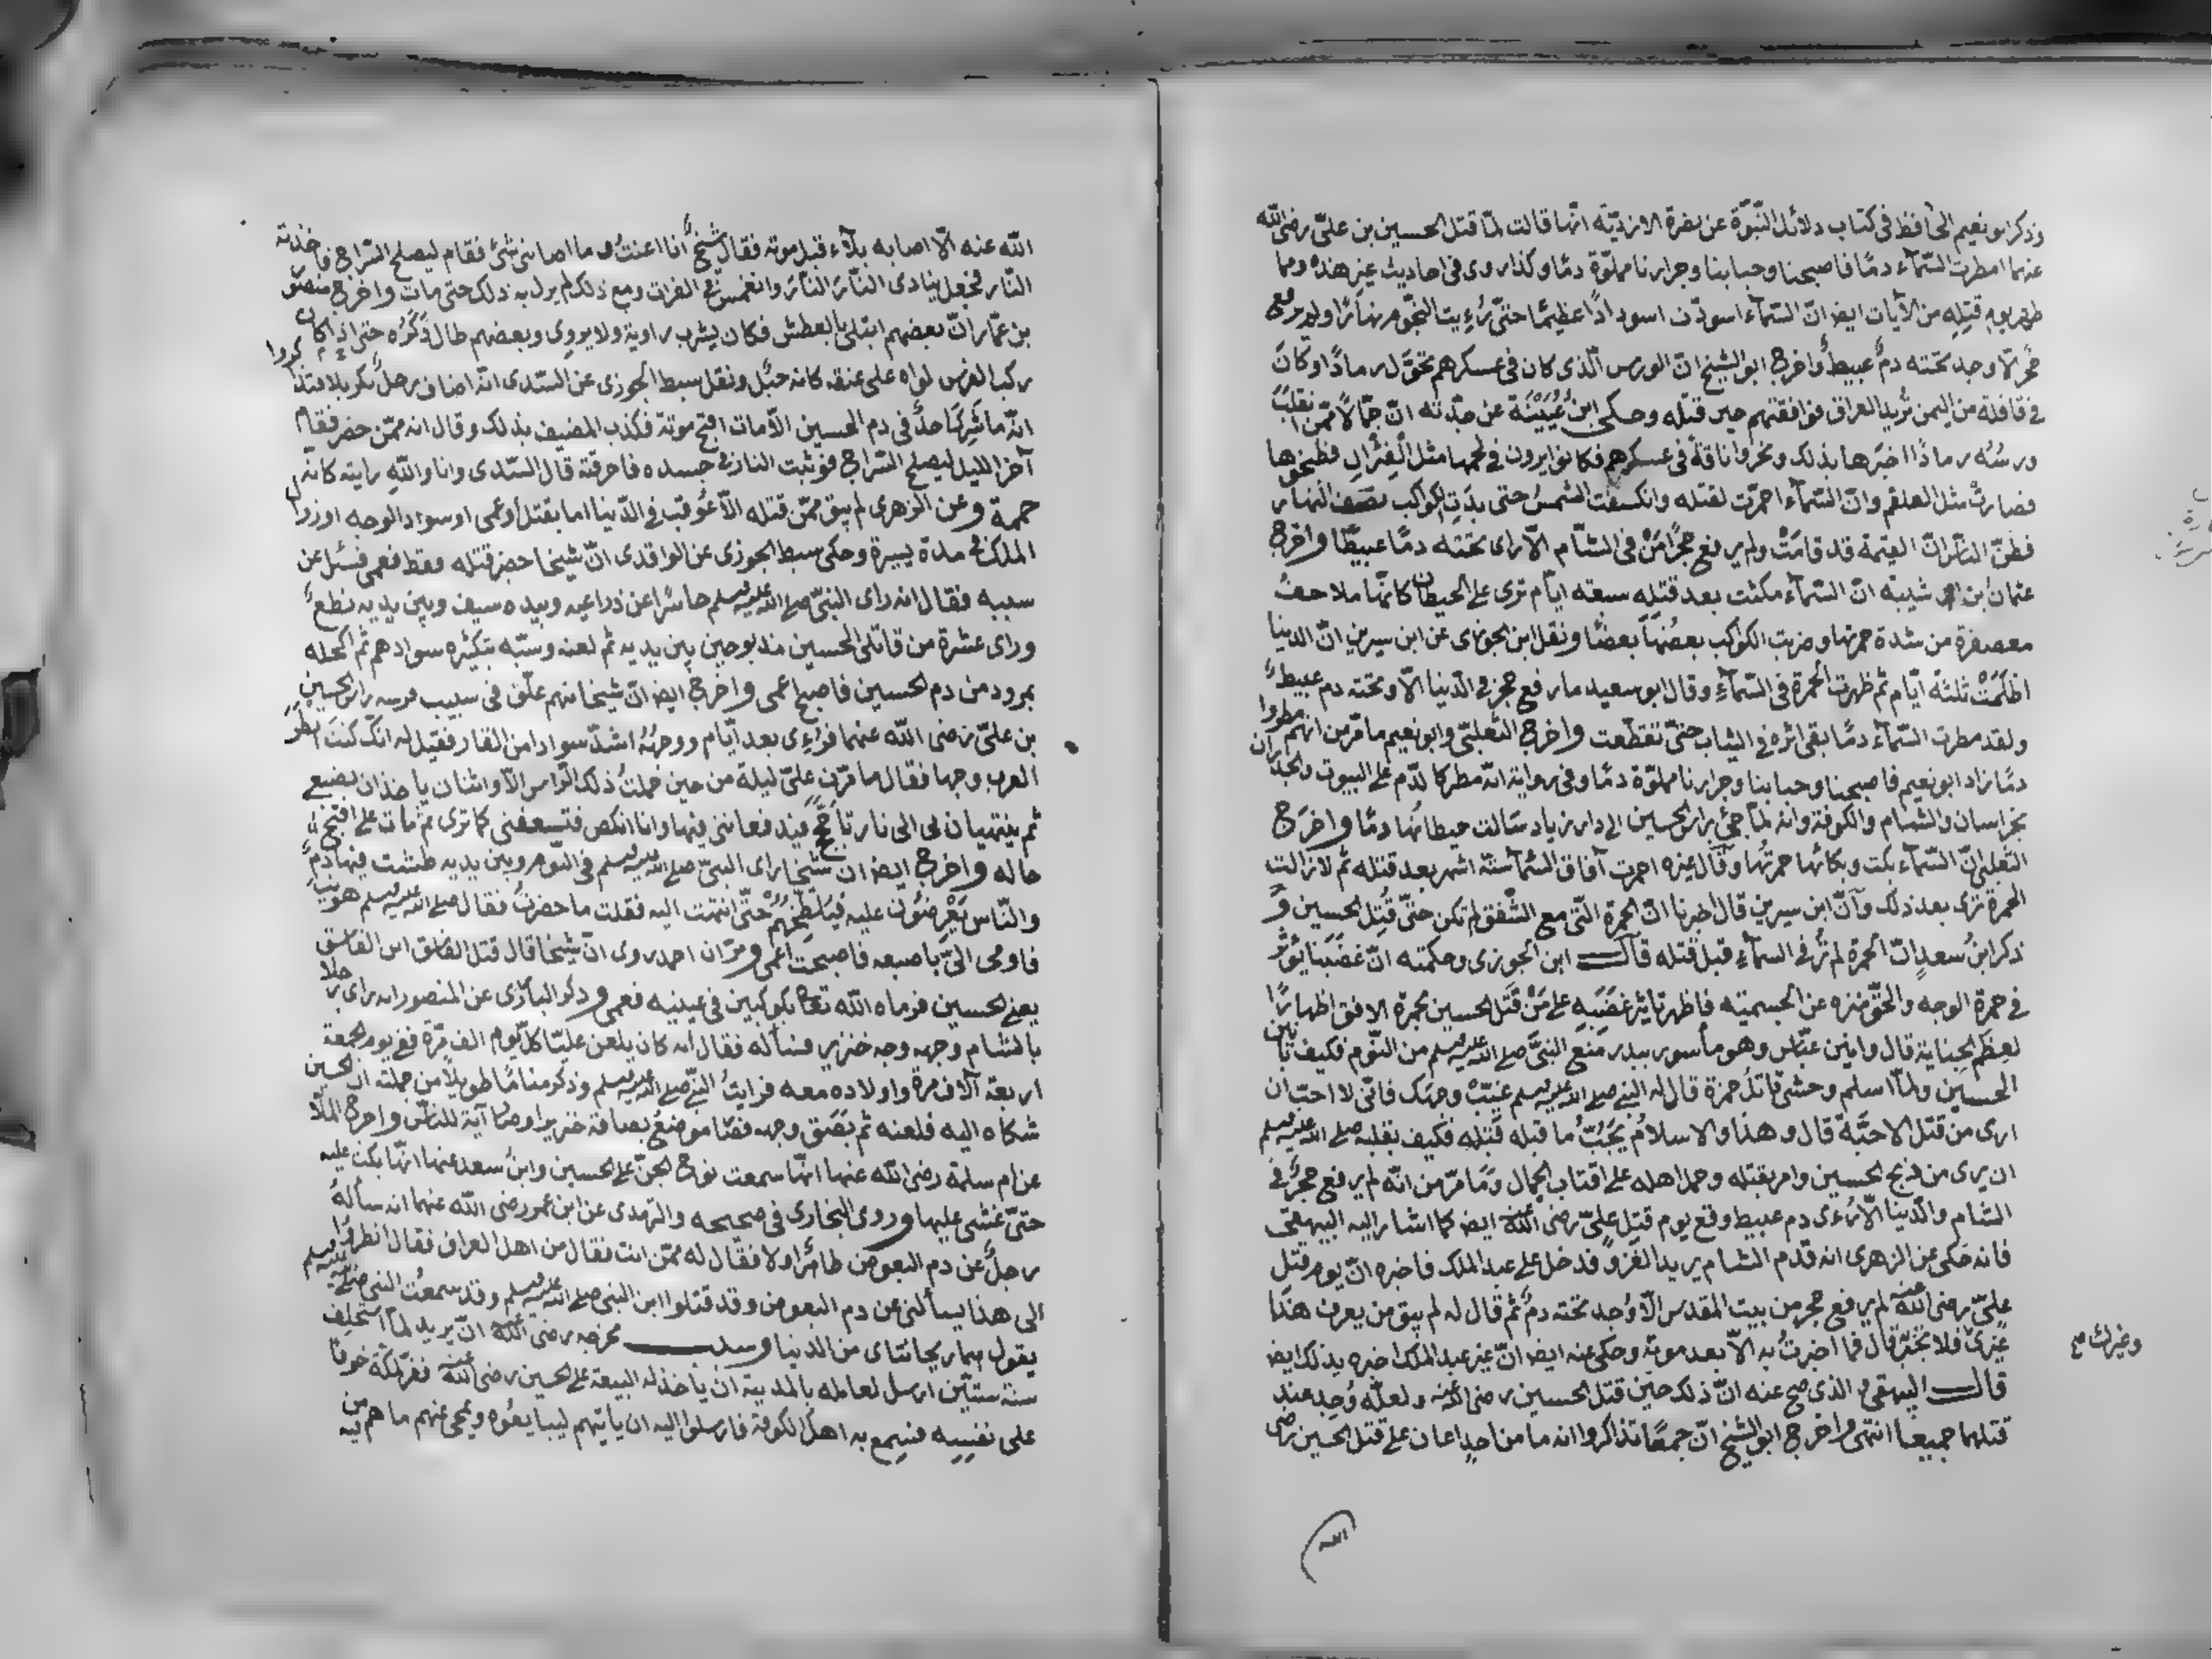 وذكر ابو نعيم الحافظ في كتاب دلائل النّبوّة عن نضرة الازديّة انّها قالت لمّا قتل الحسين بن عليّ رضي الله
عنهما امطرت السّماء دمًا فاصبحنا وحبابنا وجرارنا مملوّة دمًا وكذا روى في احاديث غير هذه ومما
ظهر يوم قتله من الآيات ايضا انّ السّماء اسودّت اسودادًا عظيمًا حتّى رُءِيت النّجوم نهارًا ولم يرفع
حجر الّا وجد تحته دمٌ عبيطٌ واخرج ابو الشيخ انّ الورس الّذي كان في عسكرهم تحوّل رمادًا وكان
في قافلة من اليمن تُريد العراق فوافقتهم حين قتله وحكى ابنُ عُيَيْنَة عن جدّته انّ جمّالًا ممّن انقلب
ورسُه رمادًا اخبرها بذلك ونحروا ناقةً في عسكرهم فكانوا يرون في لحمها مثل الفِئْرانِ فطبخوها
فصارت مثل العلقم وانّ السّماء احمرّت لقتله وانكسفت الشمسُ حتى بدَتِ الكواكب نصف النهار
فظنّ النّاس انّ القيمة قد قامَتْ ولم يرفع حجرٌ في الشّام الّا رأى تحته دمًا عبيطًا واخرج
عثمان بن ابي شيبة انّ السّماء مكثت بعد قتله سبعة ايّام ترى على الحيطان كانّها ملاحف
معصفرة من شدة حمرتها وضربت الكواكب بعضُها بعضًا ونقل ابن الجوزي عن ابن سيرين انّ الدنيا
اظلمَتْ ثلثة ايّام ثم ظهرت الحمرة في السّماءِ وقال ابو سعيد ما رفع حجر في الدّنيا الّا وتحته دم عبيطٌ
ولقد مطرت السّماء دمًا بقي اثره في الثياب حتّى تقطّعت واخرج الثّعلبيّ وابو نعيم ما مرّ من انهم مطروا
دمًا زاد ابو نعيم فاصبحنا وحبابنا وجرارنا مملوّة دمًا وفي رواية انّه مطر كالدّم على البيوت والجدران
بخراسان والشام والكوفة وانه لمّا جئ براس الحسين الى دار زياد سالت حيطانُها دمًا واخرج
الثّعلبي انّ السّماء بكت وبكائها حمرتُها وقال غيره احمرت آفاق السّماء ستّة اشهر بعد قتله ثم لا زالت
الحمرة ترى بعد ذلك وانّ ابن سيرين قال اخبرنا انّ الحمرة الّتي مع الشّفق لم تكن حتّى قُتِل الحسين و
ذكر ابنُ سعدٍ انّ الحمرة لم تُر في السماءِ قبل قتله قال ابن الجوزي وحكمته انّ غضَبَنا يؤثر
في حمرة الوجه والحقّ منزه عن الجسميّة فاظهر تاثير غضَبِهِ على مَنْ قَتَل الحسين بحمرة الافق اظهارًا
لعِظَم الجناية قال وانين عبّاس وهو مأسور ببدر منع النبيّ صلى الله عليه وسلم من النّوم فكيف بانين
الحسين ولمّا اسلم وحشي قاتلُ حمزة قال له النبي صلى الله عليه وسلم غيّبْ وجهك فانّي لا احبّ ان
ارى من قتل الاحبّة قال وهذا والاسلامُ يَجُبّ ما قبله قَبْله فكيف بقلبه صلى الله عليه وسلم
ان يرى من ذبح الحسين وامر بقتله وحمل اهله على اقتاب الجمال وَمَا مرّ من انّه لم يرفع حجرٌ في
الشام والدّنيا الّا رُءِي دم عبيط وقع يوم قتل عليّ رضي الله عنه ايضا كما اشار اليه البيهقي
فانه حَكى عن الزهري انه قدم الشام يريد الغزو فدخل على عبد الملك فاخبره انّ يوم قتل
عليّ رضي الله عنه لم يرفع حجر من بيت المقدس الّا وُجد تحته دمٌ ثم قال له لم يبق من يعرف هذا
غيري وغيرك فلا تخبرْ قال فما اخبرتُ به الّا بعد موته وحكى عنه ايضا انّ غير عبد الملك اخبره بذلك ايضا
قال البيهقي والذي صح عنه انّ ذلك حين قتل الحسين رضي الله عنه ولعلّه وُجِد عند
قتلهما جميعًا انتهى واخرج ابو الشيخ انّ جمعًا تذاكروا انه ما من احدٍ اعان على قتل الحسين رضي
وغيرك صح
الله
الله عنه الّا اصابه بلاء قبل موته فقال شيخٌ انا اعنتُ وما اصابني شئ فقام ليصلح السّراج فاخذته
النّار فجعل ينادي النّار النّار وانغمس في الفرات ومع ذلك لم يزل به ذلك حتى مات واخرج منصور
بن عمّار انّ بعضهم ابتلي بالعطش فكان يشرب راوية ولا يروى وبعضهم طال ذَكَرُه حتى اذا كان
ركب الفرس لواه على عنقه كانه حبْل ونقل سبط الجوزي عن السّدي انّه اضاف رجلٌ بكربلا فتذاكروا
انّه ما شَرِكَ احدٌ في دم الحسين الّا مات اقبح موتة فكذب المضيف بذلك وقال انه ممّن حضر فقام
آخر الليل ليصلح السّراج فوثبت النار في جسده فاحرقته قال السّدي وانا واللهِ رايته كانّه
حممة وعن الزهري لم يبق ممّن قتله الّا عُوقب في الدّنيا اما بقتل او عمى او سواد الوجه او زوال
الملك في مدة يسيرة وحكى سبط الجوزي عن الواقدي انّ شيخا حضر قتله فقط فعمي فسُئل عن
سببه فقال انه راى النبيّ صلى الله عليه وسلم حاسرًا عن ذراعيه وبيده سيف وبين يديه نطعٌ
ورأى عشرة من قاتلي الحسين مذبوحين بين يديه ثم لعنه وسبّه بتكثيره سوادهم ثم اكحله
بمرود من دم الحسين فاصبح اعمى واخرج ايضا انّ شيخا منهم علّق في سبيب فرسه راس الحسين
بن عليّ رضي الله عنهما فرُءِي بعد ايّام ووجهُهُ اشدّ سوادا من القار فقيل له انّك كنتَ انضر
العرب وجها فقال ما مرّت عليّ ليلة من حين حملتُ ذلك الرّاس الّا واثنان ياخذان بضبعي
ثم ينتهيان بي الى نار تأجّج فيدفعانني فيها وانا انكص فتسعفني كما ترى ثم مات على اقبح
حاله واخرج ايضا ان شيخا راى النبيّ صلى الله عليه وسلم في النّوم وبين يديه طشت فيها دمٌ
والنّاس يُعْرضُون عليه فيُلطّخُهُمْ حتّى انتهت اليه فقلت ما حضرتُ فقال صلى الله عليه وسلم هويتَ
فاومى اليّ باصبعه فاصبحت اعمى ومرّ ان احمد روى انّ شيخا قال قتل الفاسق ابن الفاسق
يعني الحسين فرماه الله تعالى بكوكبين في عينيه فعمي وذكر البارزي عن المنصور انه راى رجلا
بالشام وجهه وجه خنزير فسأله فقال انه كان يلعن عليّا كلّ يوم الف مرّة ففي يوم الجمعة
اربعة آلاف مرة واولاده معه فرايتُ النبيّ صلى الله عليه وسلم وذكر منامًا طويلًا من جملته ان الحسين
شكاه اليه فلعنه ثم بَصَق وجهه فصار موضعُ بصاقه خنزيرا وصار آية للنّاس واخرج الملّا
عن ام سلمة رضي الله عنها انّها سمعت نوح الجنّ على الحسين وابنُ سعد عنها انّها بكت عليه
حتّى غشي عليها وروى البخاري في صحيحه والترمذي عن ابن عمر رضي الله عنهما انه سأله
رجلٌ عن دم البعوض طاهرًا اولا فقال له ممّن انت فقال من اهل العراق فقال انظروا
الى هذا يسألني عن دم البعوض وقد قتلوا ابن النبي صلى الله عليه وسلم وقد سمعتُ النبي صلى الله عليه وسلم
يقول هما ريحانتاي من الدنيا وسبب مخرجه رضي الله عنه انّ يزيد لمّا استخلف
سنة ستّين ارسل لعامله بالمدينة ان يأخذ له البيعة على الحسين رضي الله عنه ففرّ لمكّة خوفًا
على نفسِه فسمع به اهل الكوفة فارسلوا اليه ان ياتيهم ليبايعُوه ويمحي عنهم ما هم فيه من